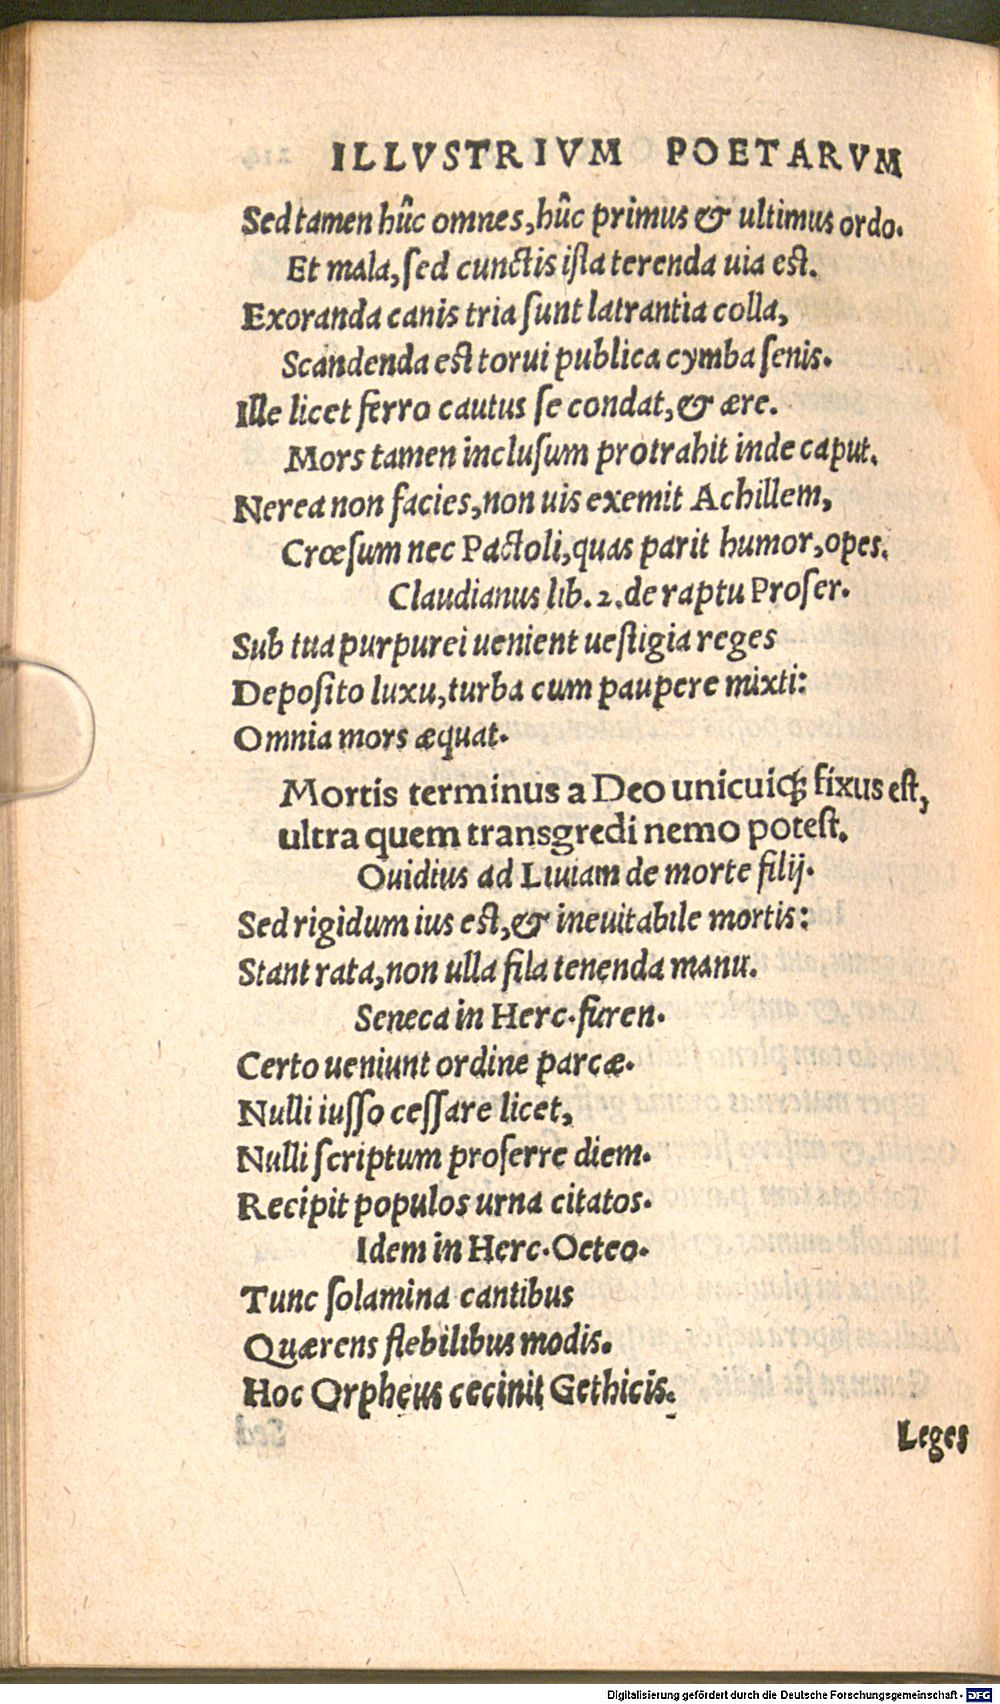 ILLVSTRIVM POETARVM
Sed tamen hûc omnes, hûc primus & ultimus ordo.
Et mala, sed cunctis ista terenda uia est.
Exoranda canis tria sunt latrantia colla,
Scandenda est torui publica cymba senis.
Ille licet ferro cautus se condat, & ære.
Mors tamen inclusum protrahit inde caput.
Nerea non facies, non uis exemit Achillem,
Crœsum nec Pactoli, quas parit humor, opes.
Claudianus lib. 2. de raptu Proser.
Sub tua purpurei uenient uestigia reges
Deposito luxu, turba cum paupere mixti:
Omnia mors æquat.
Mortis terminus a Deo unicuiqꝫ fixus est,
ultra quem transgredi nemo potest.
Ouidius ad Liuiam de morte filij.
Sed rigidum ius est, & ineuitabile mortis:
Stant rata, non ulla fila tenenda manu.
Seneca in Herc. furen.
Certo ueniunt ordine parcæ.
Nulli iusso cessare licet,
Nulli scriptum proferre diem.
Recipit populos urna citatos.
Idem in Herc. Oeteo.
Tunc solamina cantibus
Quærens flebilibus modis.
Hoc Orpheus cecinit Gethicis.
Leges
Digitalisierung gefördert durch die Deutsche Forschungsgemeinschaft - DFG